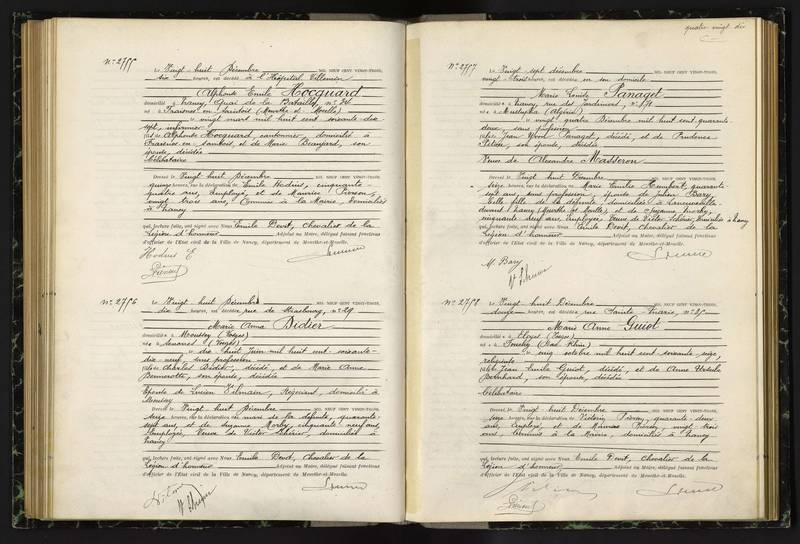 N° 2755
Le Vingt huit Décembre MIL NEUF CENT VINGT-TROIS,
dix heures, est décédé à l'Hôpital Villemin
Alphonse Emile Hocquard
domicilié à Nancy, Quai de la Bataille, N° 24
né à Fraisnes en Saintois (Meurthe et Moselle)
le vingt mars mil huit cent soixante dix
sept, infirmier
fils de Alphonse Hocquard, cantonnier, domicilié à
Fraisnes en Saintois, et de Marie Beaujard, son
épouse, décédée
Célibataire
Dressé le Vingt huit Décembre MIL NEUF CENT VINGT-TROIS,
quinze heures, sur la déclaration de Emile Hodius, cinquante-
quatre ans, Employé, et de Maurice Pierson,
vingt trois ans, Commis à la Mairie, domiciliés
à Nancy
qui, lecture faite, ont signé avec Nous Emile Devit, Chevalier de la
Légion d'honneur Adjoint au Maire, délégué faisant fonctions
d'officier de l'Etat civil de la Ville de Nancy, département de Meurthe-et-Moselle.
Hodius E
N° 2756
Le Vingt huit Décembre MIL NEUF CENT VINGT-TROIS,
dix heures, est décédée rue de Strasbourg, N° 29
Marie Anna Didier
domiciliée à Moussey (Vosges)
née à Senones (Vosges)
le dix huit Juin mil huit cent soixante-
dix neuf, sans profession
fille de Charles Didier, décédé, et de Marie Anne
son épouse, décédée
Epouse de Lucien domicilié à
Moussey
Dressé le Vingt huit Décembre MIL NEUF CENT VINGT-TROIS,
seize heures, sur la déclaration du mari de la défunte, quarante-
sept ans, et de Suzanne Morby, cinquante neuf ans,
Employée, Veuve de Victor domiciliés à
Nancy
qui, lecture faite, ont signé avec Nous Emile Devit, Chevalier de la
Légion d'honneur Adjoint au Maire, délégué faisant fonctions
d'officier de l'Etat civil de la Ville de Nancy, département de Meurthe-et-Moselle.
quatre vingt dix
N° 2757
Le Vingt sept décembre MIL NEUF CENT VINGT-TROIS,
vingt trois heures, est décédée en son domicile
Marie Louise Panaget
domiciliée à Nancy, rue des Jardiniers, N°
née à Mustapha (Algérie)
le vingt quatre Décembre mil huit cent quarante-
deux, sans profession
fille de Jean Panaget, décédé, et de Prudence
son épouse, décédée
Veuve de Alexandre Masseron
Dressé le Vingt huit Décembre MIL NEUF CENT VINGT-TROIS,
seize heures, sur la déclaration de Marie Emilie Humbert, quarante
sept ans, sans profession, épouse de Julien Bary,
belle fille de la défunte, domiciliée à Laneuveville-
devant Nancy (Meurthe et Moselle), et de Suzanne Morby,
cinquante neuf ans, Employée, Veuve de Victor domiciliée à Nancy
qui, lecture faite, ont signé avec Nous Emile Devit, Chevalier de la
Légion d'honneur Adjoint au Maire, délégué faisant fonctions
d'officier de l'Etat civil de la Ville de Nancy, département de Meurthe-et-Moselle.
M. Bary
N° 2758
Le Vingt huit Décembre MIL NEUF CENT VINGT-TROIS,
douze heures, est décédée rue Sainte Marie N°
Marie Anne Guiot
domiciliée à Eloyes (Vosges)
née à Fouchy (Bas Rhin)
le cinq octobre mil huit cent soixante seize,
religieuse
fille de Jean Emile Guiot, décédé, et de Anne Ursule
Bernhard, son épouse, décédée
Célibataire
Dressé le Vingt huit Décembre MIL NEUF CENT VINGT-TROIS,
seize heures, sur la déclaration de Victor quarante deux
ans, employé et de Maurice Pierson, vingt trois
ans, Commis à la Mairie, domiciliés à Nancy
qui, lecture faite, ont signé avec Nous Emile Devit, Chevalier de la
Légion d'honneur Adjoint au Maire, délégué faisant fonctions
d'officier de l'Etat civil de la Ville de Nancy, département de Meurthe-et-Moselle.